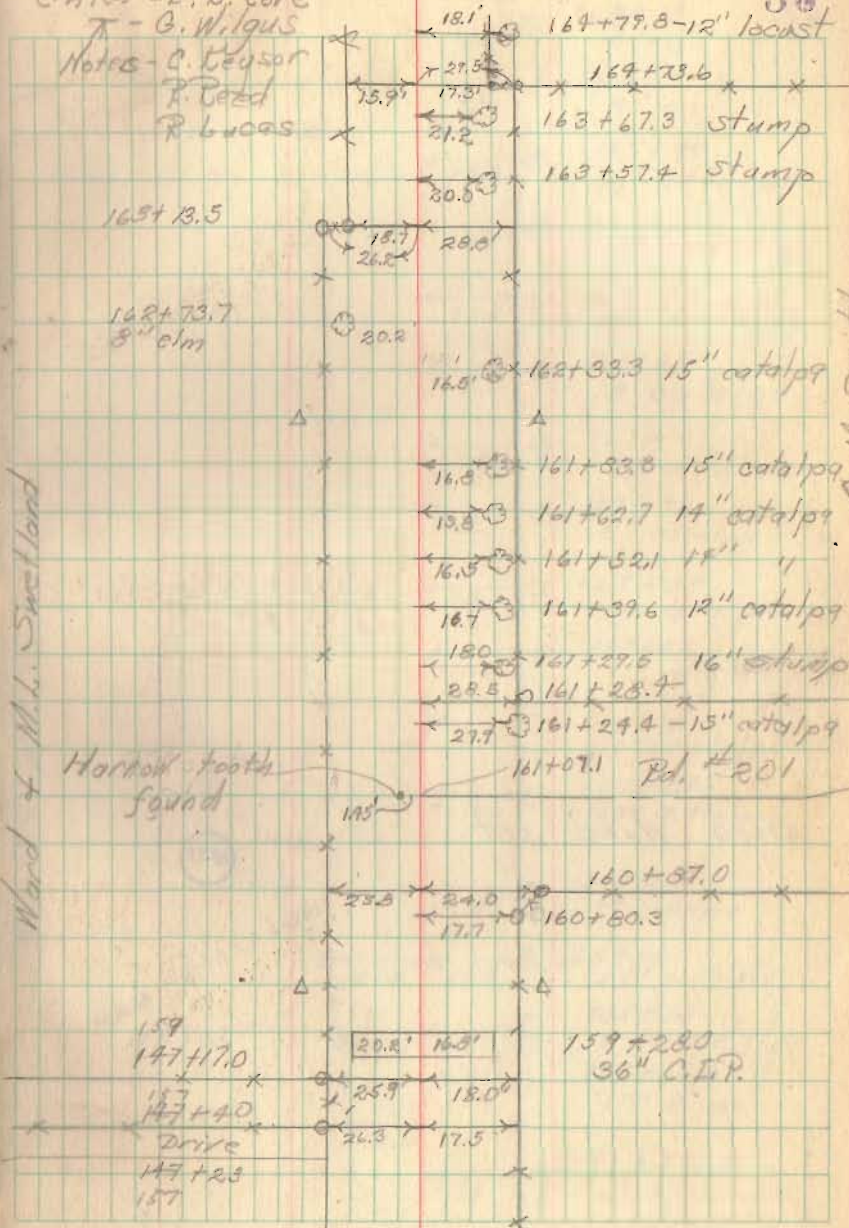 - G. Wilgus
Notes - C. Keysor
R. Reed
R. Lucas
18.1' 164+79.8-12" locust
29.5 164+73.6
15.9' 17.3'
21.2 163+67.3 stump
20.0 163+57.4 stump
163+13.5
18.7 28.8'
26.2
162+73.7
8" elm
20.2'
16.8' 162+33.3 15" catalpa
16.8 161+83.8 15" catalpa
15.8 161+62.7 14" catalpa
16.5 161+52.1 14" "
16.7 161+39.6 12" catalpa
18.0 161+29.5 16" stump
28.5 161+28.4
27.9 161+24.4 -15" catalpa
Harrow tooth
found
1.45'
161+09.1 Rd. #201
160+87.0
23.8 24.0
17.7 160+80.3
Ward & M.L. Swetland
159
147+17.0
20.2' 16.8'
159+28.0
36" C.I.P.
25.9' 18.0'
157
147+40
Drive
26.3 17.5
147+23
157